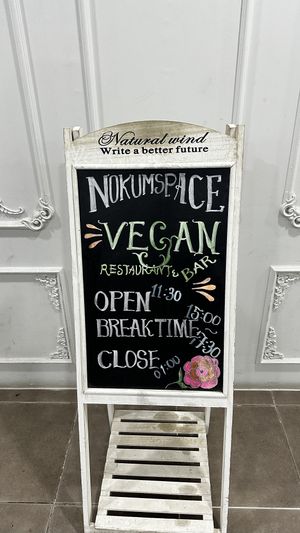 Natural wind
Write a better future
NOKUMSPACE
VEGAN
RESTAURANT & BAR
OPEN 11:30
BREAKTIME 15:00~
17:30
CLOSE 01:00